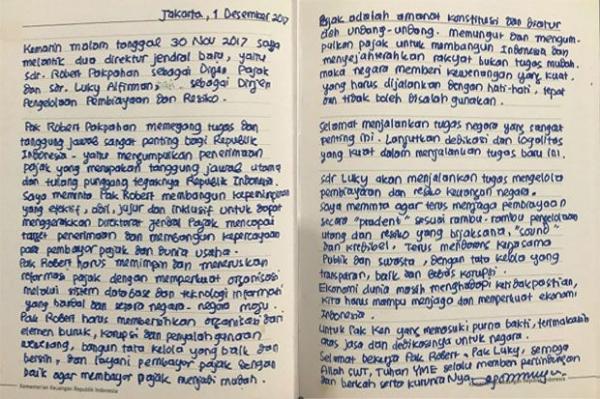 Jakarta, 1 Desember 2017
Kemarin malam tanggal 30 Nov 2017 saya
melantik dua direktur jendral baru, yaitu
sdr. Robert Pakpahan sebagai Dirjen Pajak
dan sdr. Luky Alfirman, sebagai Dirjen
Pengelolaan Pembiayaan dan Resiko.
Pak Robert Pakpahan memegang tugas dan
tanggung jawab sangat penting bagi Republik
Indonesia - yaitu mengumpulkan penerimaan
pajak yang merupakan tanggung jawab utama
dan tulang punggung tegaknya Republik Indonesia.
Saya meminta Pak Robert membangun kepemimpinan
yang efektif, adil, jujur dan inklusif untuk dapat
menggerakkan Direktorat Jendral Pajak mencapai
target penerimaan dan membangun kepercayaan
para pembayar pajak dan dunia usaha.
Pak Robert harus memimpin dan meneruskan
reformasi pajak dengan memperkuat organisasi
melalui sistem database dan teknologi informasi
yang handal dan setara negara-negara maju.
Pak Robert harus membersihkan organisasi dari
elemen buruk, korupsi dan penyalahgunaan
wewenang, bangun tata kelola yang baik dan
bersih, dan layani pembayar pajak dengan
baik agar membayar pajak menjadi mudah.
Kementerian Keuangan Republik Indonesia
Pajak adalah amanat konstitusi dan diatur
oleh undang-undang. memungut dan mengum-
pulkan pajak untuk membangun Indonesia dan
menyejahterahkan rakyat bukan tugas mudah.
maka negara memberi kewenangan yang kuat.
yang harus dijalankan dengan hati-hati, tepat
dan tidak boleh disalah gunakan.
Selamat menjalankan tugas negara yang sangat
penting ini. Lanjutkan dedikasi dan loyalitas
yang kuat dalam menjalankan tugas baru ini.
sdr Luky akan menjalankan tugas mengelola
pembiayaan dan resiko keuangan negara.
Saya meminta agar terus menjaga pembiayaan
secara "prudent" sesuai rambu-rambu pengelolaan
utang dan resiko yang bijaksana, "sound"
dan kredibel, Terus mendorong kerjasama
Publik dan swasta, dengan tata kelola yang
transparan, baik dan bebas korupsi.
Ekonomi dunia masih menghadapi ketidakpastian,
kita harus mampu menjaga dan memperkuat ekonomi
Indonesia.
Untuk Pak Ken yang memasuki purna bakti, terimakasih
atas jasa dan dedikasinya untuk negara.
Selamat bekerja Pak Robert & Pak Luky, semoga
Allah SWT, Tuhan YME selalu memberi perlindungan
dan berkah serta kurunia Nya.